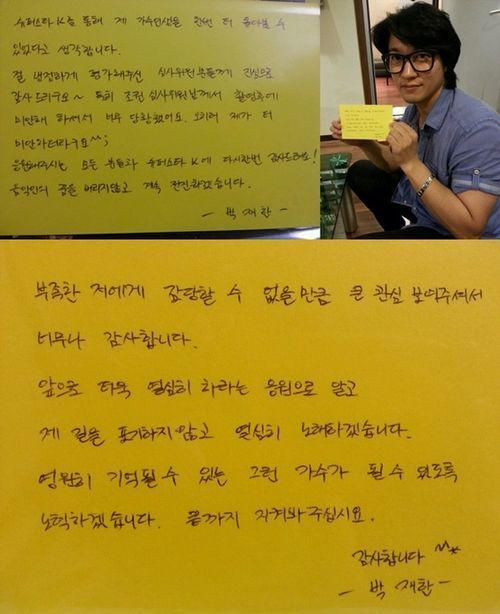 슈퍼스타K를 통해 제 가수인생을 한번 더 돌아볼 수
있었다고 생각합니다.
절 냉정하게 평가해주신 심사위원분들께 진심으로
감사 드리구요~ 특히 조권 심사위원님께서 촬영후에
미안해 하셔서 너무 당황했어요. 오히려 제가 더
미안하더라구요^^;
응원해주시는 모든 분들과 슈퍼스타 K에 다시한번 감사드려요!
음악인의 꿈을 버리지않고 계속 전진하겠습니다.
- 박 재한 -
부족한 저에게 감당할 수 없을만큼 큰 관심 보여주셔서
너무나 감사합니다.
앞으로 더욱 열심히 하라는 응원으로 알고
제 길을 포기하지않고 열심히 노래하겠습니다.
영원히 기억될 수 있는 그런 가수가 될 수 있도록
노력하겠습니다. 끝까지 지켜봐 주십시요.
감사합니다 ^^*
- 박 재한 -